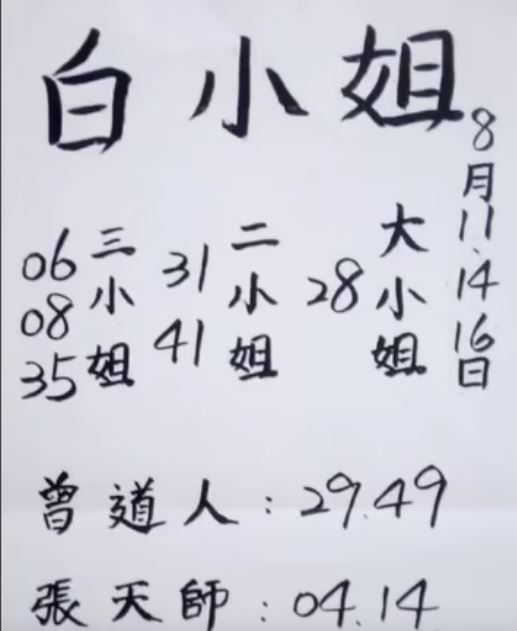 白小姐
8月11、14、16日
大小姐
28
二小姐
31
41
三小姐
06
08
35
曾道人：29.49
張天師：04.14